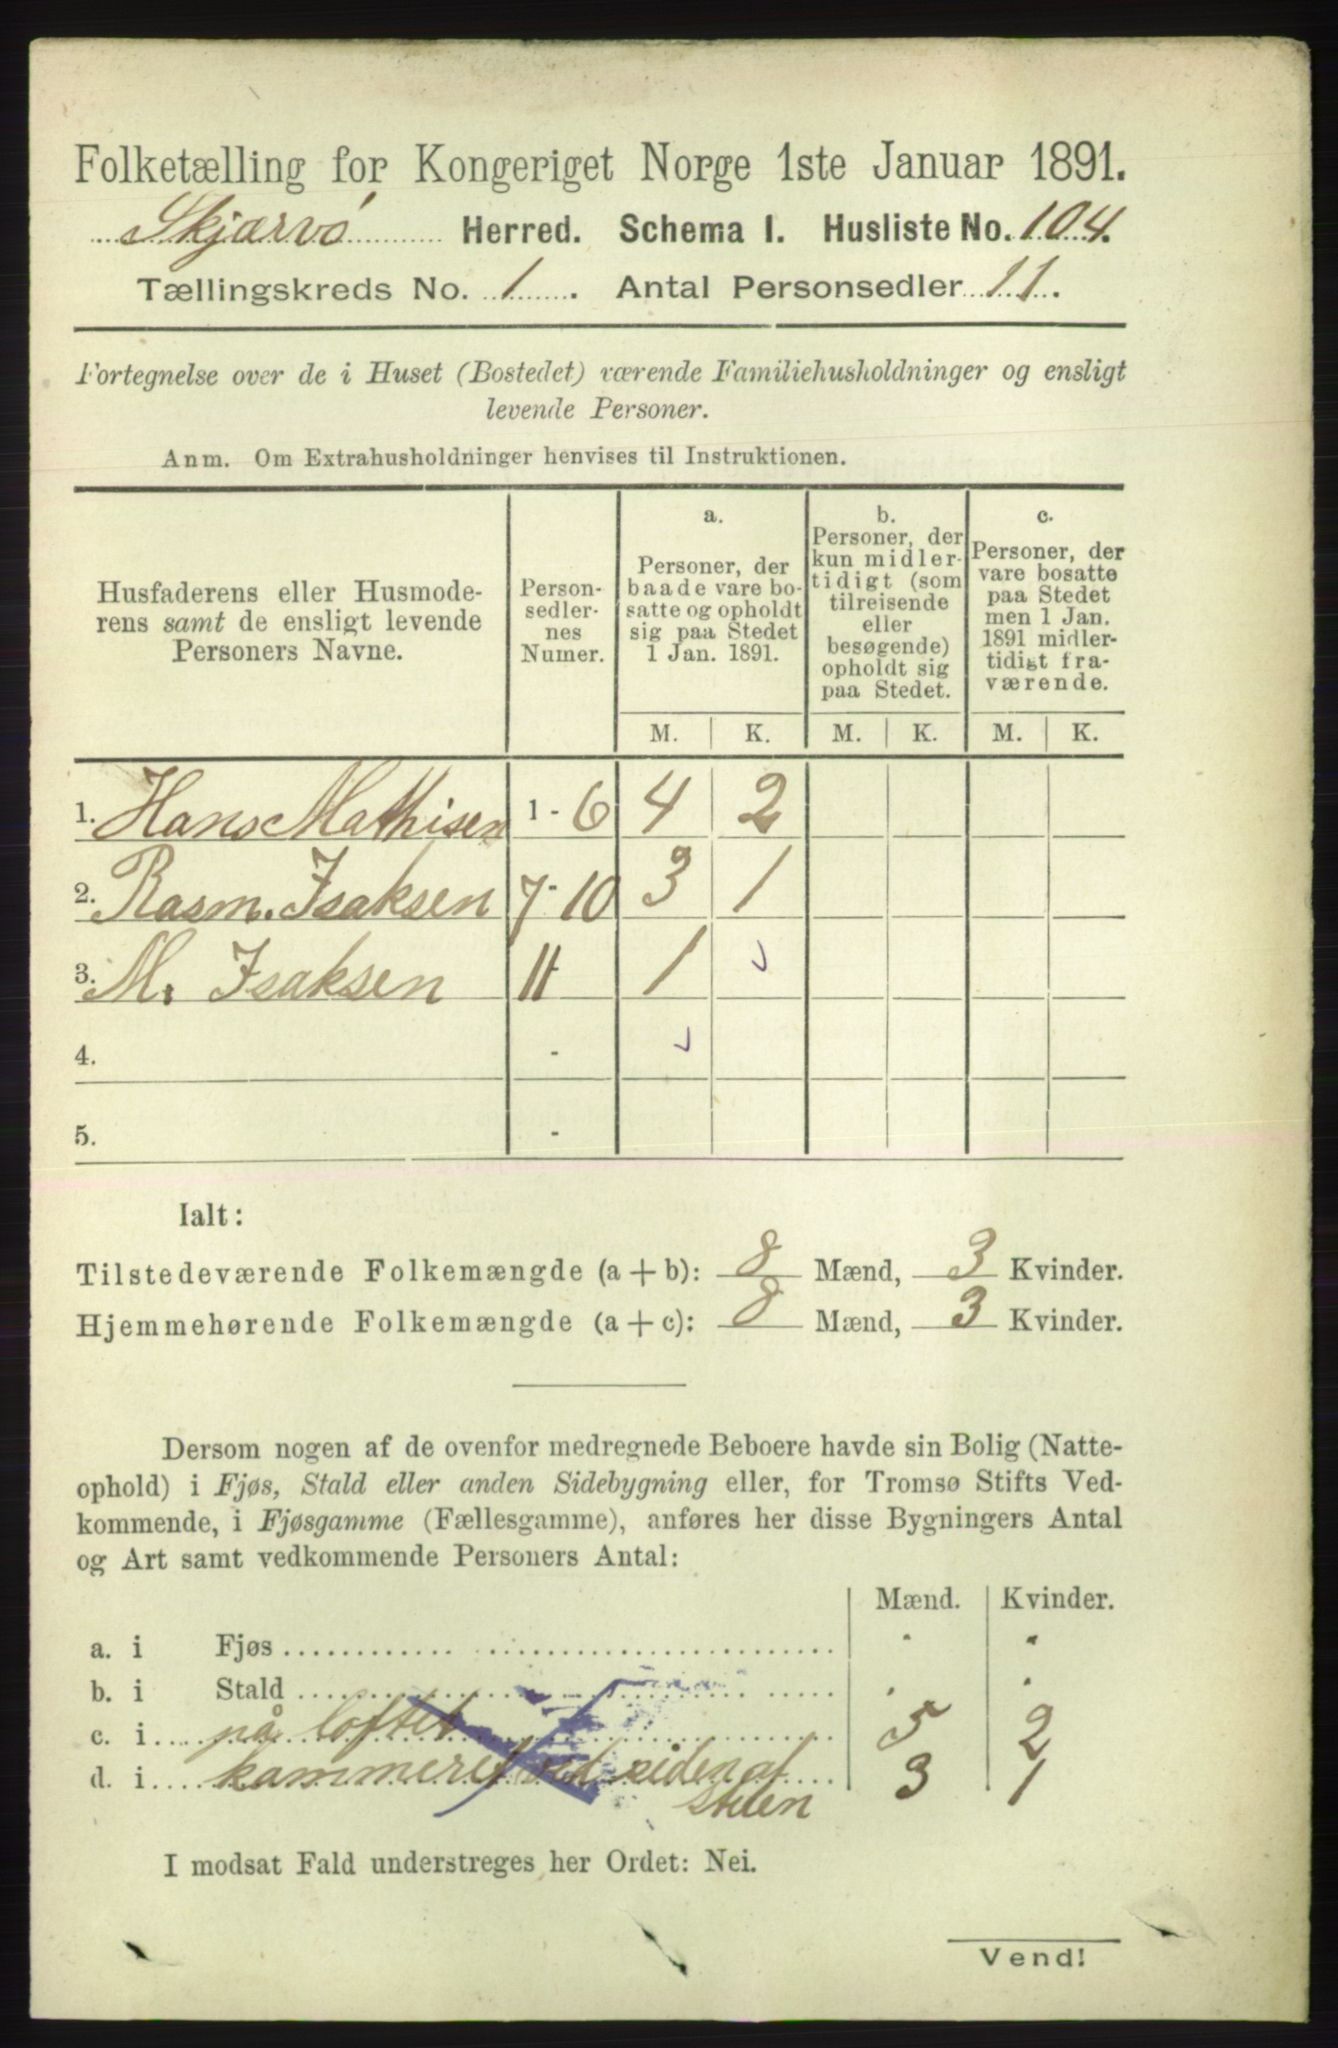 Folketælling for Kongeriget Norge 1ste Januar 1891.
Skjærvö Herred. Schema I. Husliste No. 104.
Tællingskreds No. 1. Antal Personsedler 11.
Fortegnelse over de i Huset (Bostedet) værende Familiehusholdninger og ensligt
levende Personer.
Anm. Om Extrahusholdninger henvises til Instruktionen.
Husfaderens eller Husmode-
rens samt de ensligt levende
Personers Navne.
Person-
sedler-
nes
Numer.
a.
Personer, der
baade vare bo-
satte og opholdt
sig paa Stedet
1 Jan. 1891.
b.
Personer, der
kun midler-
tidigt (som
tilreisende
eller
besøgende)
opholdt sig
paa Stedet.
c.
Personer, der
vare bosatte
paa Stedet
men 1 Jan.
1891 midler-
tidigt fra-
værende.
M. K. M. K. M. K.
1. Hans Mathisen 1 - 6 4 2
2. Rasm. Isaksen 7 - 10 3 1
3. M. Isaksen 11 1
4. -
5. -
Ialt:
Tilstedeværende Folkemængde (a + b): 8 Mænd, 3 Kvinder.
Hjemmehørende Folkemængde (a + c): 8 Mænd, 3 Kvinder.
Dersom nogen af de ovenfor medregnede Beboere havde sin Bolig (Natte-
ophold) i Fjøs, Stald eller anden Sidebygning eller, for Tromsø Stifts Ved-
kommende, i Fjøsgamme (Fællesgamme), anføres her disse Bygningers Antal
og Art samt vedkommende Personers Antal:
Mænd. Kvinder.
a. i Fjøs
b. i Stald
c. i på loftet 5 2
d. i kammeret ved siden af 3 1
stuen
I modsat Fald understreges her Ordet: Nei.
Vend!